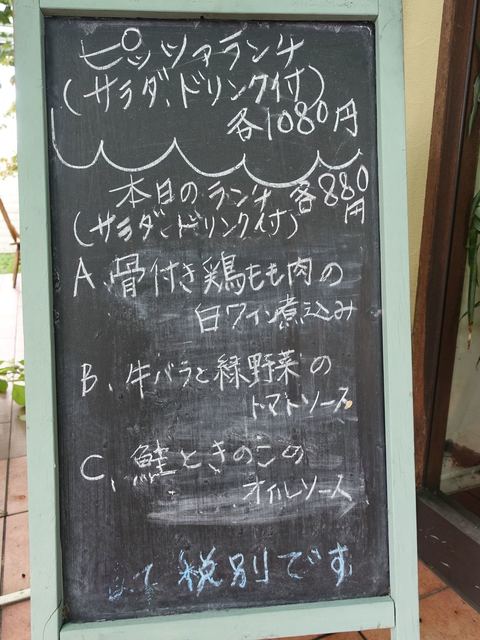 ピッツァランチ
(サラダ、ドリンク付)
各1080円
本日のランチ 各880円
(サラダ、ドリンク付)
A、骨付き鶏もも肉の
白ワイン煮込み
B、牛バラと緑野菜の
トマトソース
C、鮭ときのこの
オイルソース
税別です